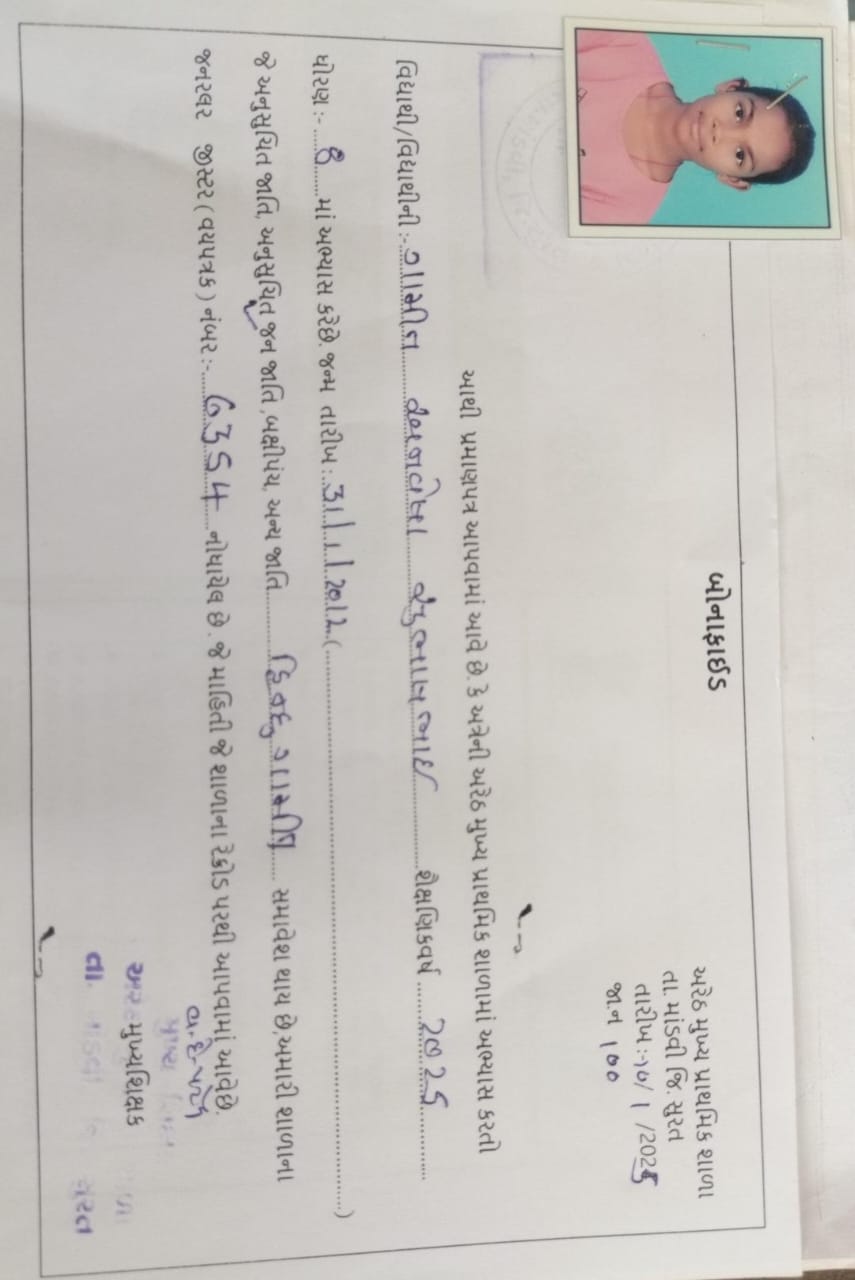 બોનાફાઈડ
અરેઠ મુખ્ય પ્રાથમિક શાળા
તા. માંડવી જિ. સુરત
તારીખ :-૧૦/ 1 /2025
જા.ન ૧૦૦
આથી પ્રમાણપત્ર આપવામાં આવે છે. કે અત્રેની અરેઠ મુખ્ય પ્રાથમિક શાળામાં અભ્યાસ કરતી
વિદ્યાર્થી/વિદ્યાર્થીની :- ગામીત સુખુભાઈ શૈક્ષણિકવર્ષ 2025
ધોરણ :- 8 માં અભ્યાસ કરેછે. જન્મ તારીખ : 31/1/2012 (                    )
જે અનુસુચિત જાતિ, અનુસુચિત જન જાતિ, બક્ષીપંચ, અન્ય જાતિ હિન્દુ ગામીત સમાવેશ થાય છે, અમારી શાળાના
જનરલ જીસ્ટર ( વયપત્રક ) નંબર :- 6354 નોંધાયેલ છે. જે માહિતી જે શાળાના રેકોર્ડ પરથી આપવામાં આવેછે.
મુખ્યશિક્ષક
અરેઠ
તા. માંડવી જિ. સુરત